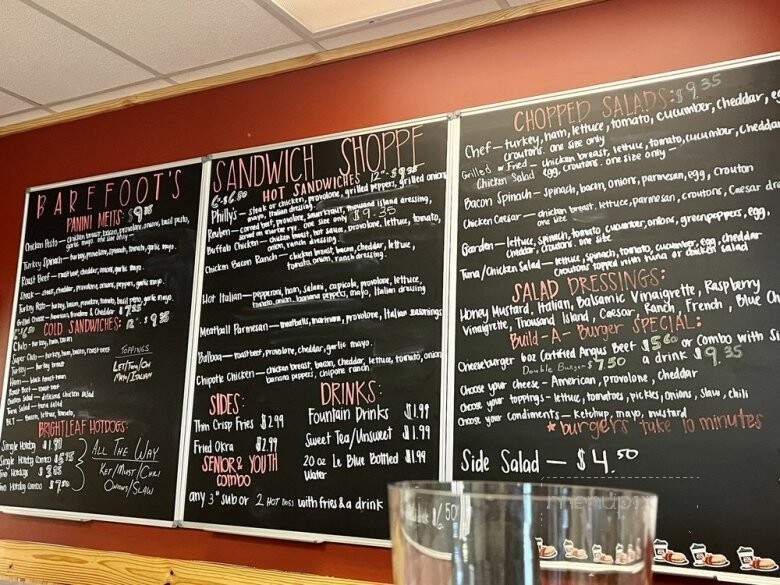 BAREFOOT'S
PANINI MELTS:
Chicken Pesto - chicken breast, bacon, provolone, onions, basil pesto,
garlic mayo. one size only
Turkey Spinach - turkey, provolone, spinach, tomato, garlic mayo.
Roast Beef - roast beef, cheddar, onions, garlic mayo.
Steak - steak, cheddar, provolone, onions, peppers, garlic mayo.
Turkey Pesto - turkey, bacon, provolone, tomato, basil pesto, garlic mayo.
Grilled Cheese - American, Provolone & Cheddar
COLD SANDWICHES: 12" - $9.35
Club - turkey, ham, bacon
Super Club - turkey, ham, bacon, roast beef
Turkey - turkey breast
Ham - black forest ham
Roast Beef - roast beef
Chicken Salad - delicious chicken salad
Tuna Salad - tuna salad
BLT - bacon, lettuce, tomato,
TOPPINGS
LET/TOM/ON
MAYO/ITALIAN
BRIGHTLEAF HOTDOGS:
Single Hotdog
Single Hotdog Combo
Two Hotdogs
Two Hotdog Combo
ALL THE WAY
KET/MUST/CHILI
ONION/SLAW
SANDWICH SHOPPE
HOT SANDWICHES 12"-$9.35
6"-$6.50
Phillys - steak or chicken, provolone, grilled peppers, grilled onion
mayo, italian dressing.
Reuben - corned beef, provolone, sauerkraut, thousand island dressing,
served on marble rye. one size only $9.35
Buffalo Chicken - chicken breast, hot sauce, provolone, lettuce, tomato,
onion, ranch dressing.
Chicken Bacon Ranch - chicken breast, bacon, cheddar, lettuce,
tomato, onion, ranch dressing.
Hot Italian - pepperoni, ham, salami, capicola, provolone, lettuce,
tomato, onion, banana peppers, mayo, Italian dressing
Meatball Parmesan - meatballs, marinara, provolone, Italian seasonings
Balboa - roast beef, provolone, cheddar, garlic mayo.
Chipotle Chicken - chicken breast, bacon, cheddar, lettuce, tomato, onion
banana peppers, chipotle ranch.
SIDES:
Thin Crisp Fries $2.99
Fried Okra $2.99
SENIOR & YOUTH
combo
any 3" sub or 2 HOT DOGS with fries & a drink
DRINKS:
Fountain Drinks $1.99
Sweet Tea/Unsweet $1.99
20 oz Le Bleu Bottled $1.99
Water
CHOPPED SALADS: $9.35
Chef - turkey, ham, lettuce, tomato, cucumber, cheddar,
croutons. one size only
Grilled or Fried - chicken breast, lettuce, tomato, cucumber, cheddar
Chicken Salad egg, croutons. one size only
Bacon Spinach - spinach, bacon, onions, parmesan, egg, crouton
Chicken Caesar - chicken breast, lettuce, parmesan, croutons, Caesar
one size
Garden - lettuce, spinach, tomato, cucumber, onions, green peppers, egg,
cheddar, croutons. one size
Tuna/Chicken Salad - lettuce, spinach, tomato, cucumber, egg, cheddar
croutons topped with tuna or chicken salad
SALAD DRESSINGS:
Honey Mustard, Italian, Balsamic Vinaigrette, Raspberry
Vinaigrette, Thousand Island, Caesar, Ranch, French, Blue
Build-A-Burger SPECIAL:
Cheeseburger 6oz Certified Angus Beef $5.60 or Combo with
Double Burger $7.50 a drink $9.35
Choose your cheese - American, provolone, cheddar
Choose your toppings - lettuce, tomatoes, pickles, onions, slaw, chili
Choose your condiments - ketchup, mayo, mustard
*burgers take 10 minutes
Side Salad - $4.50